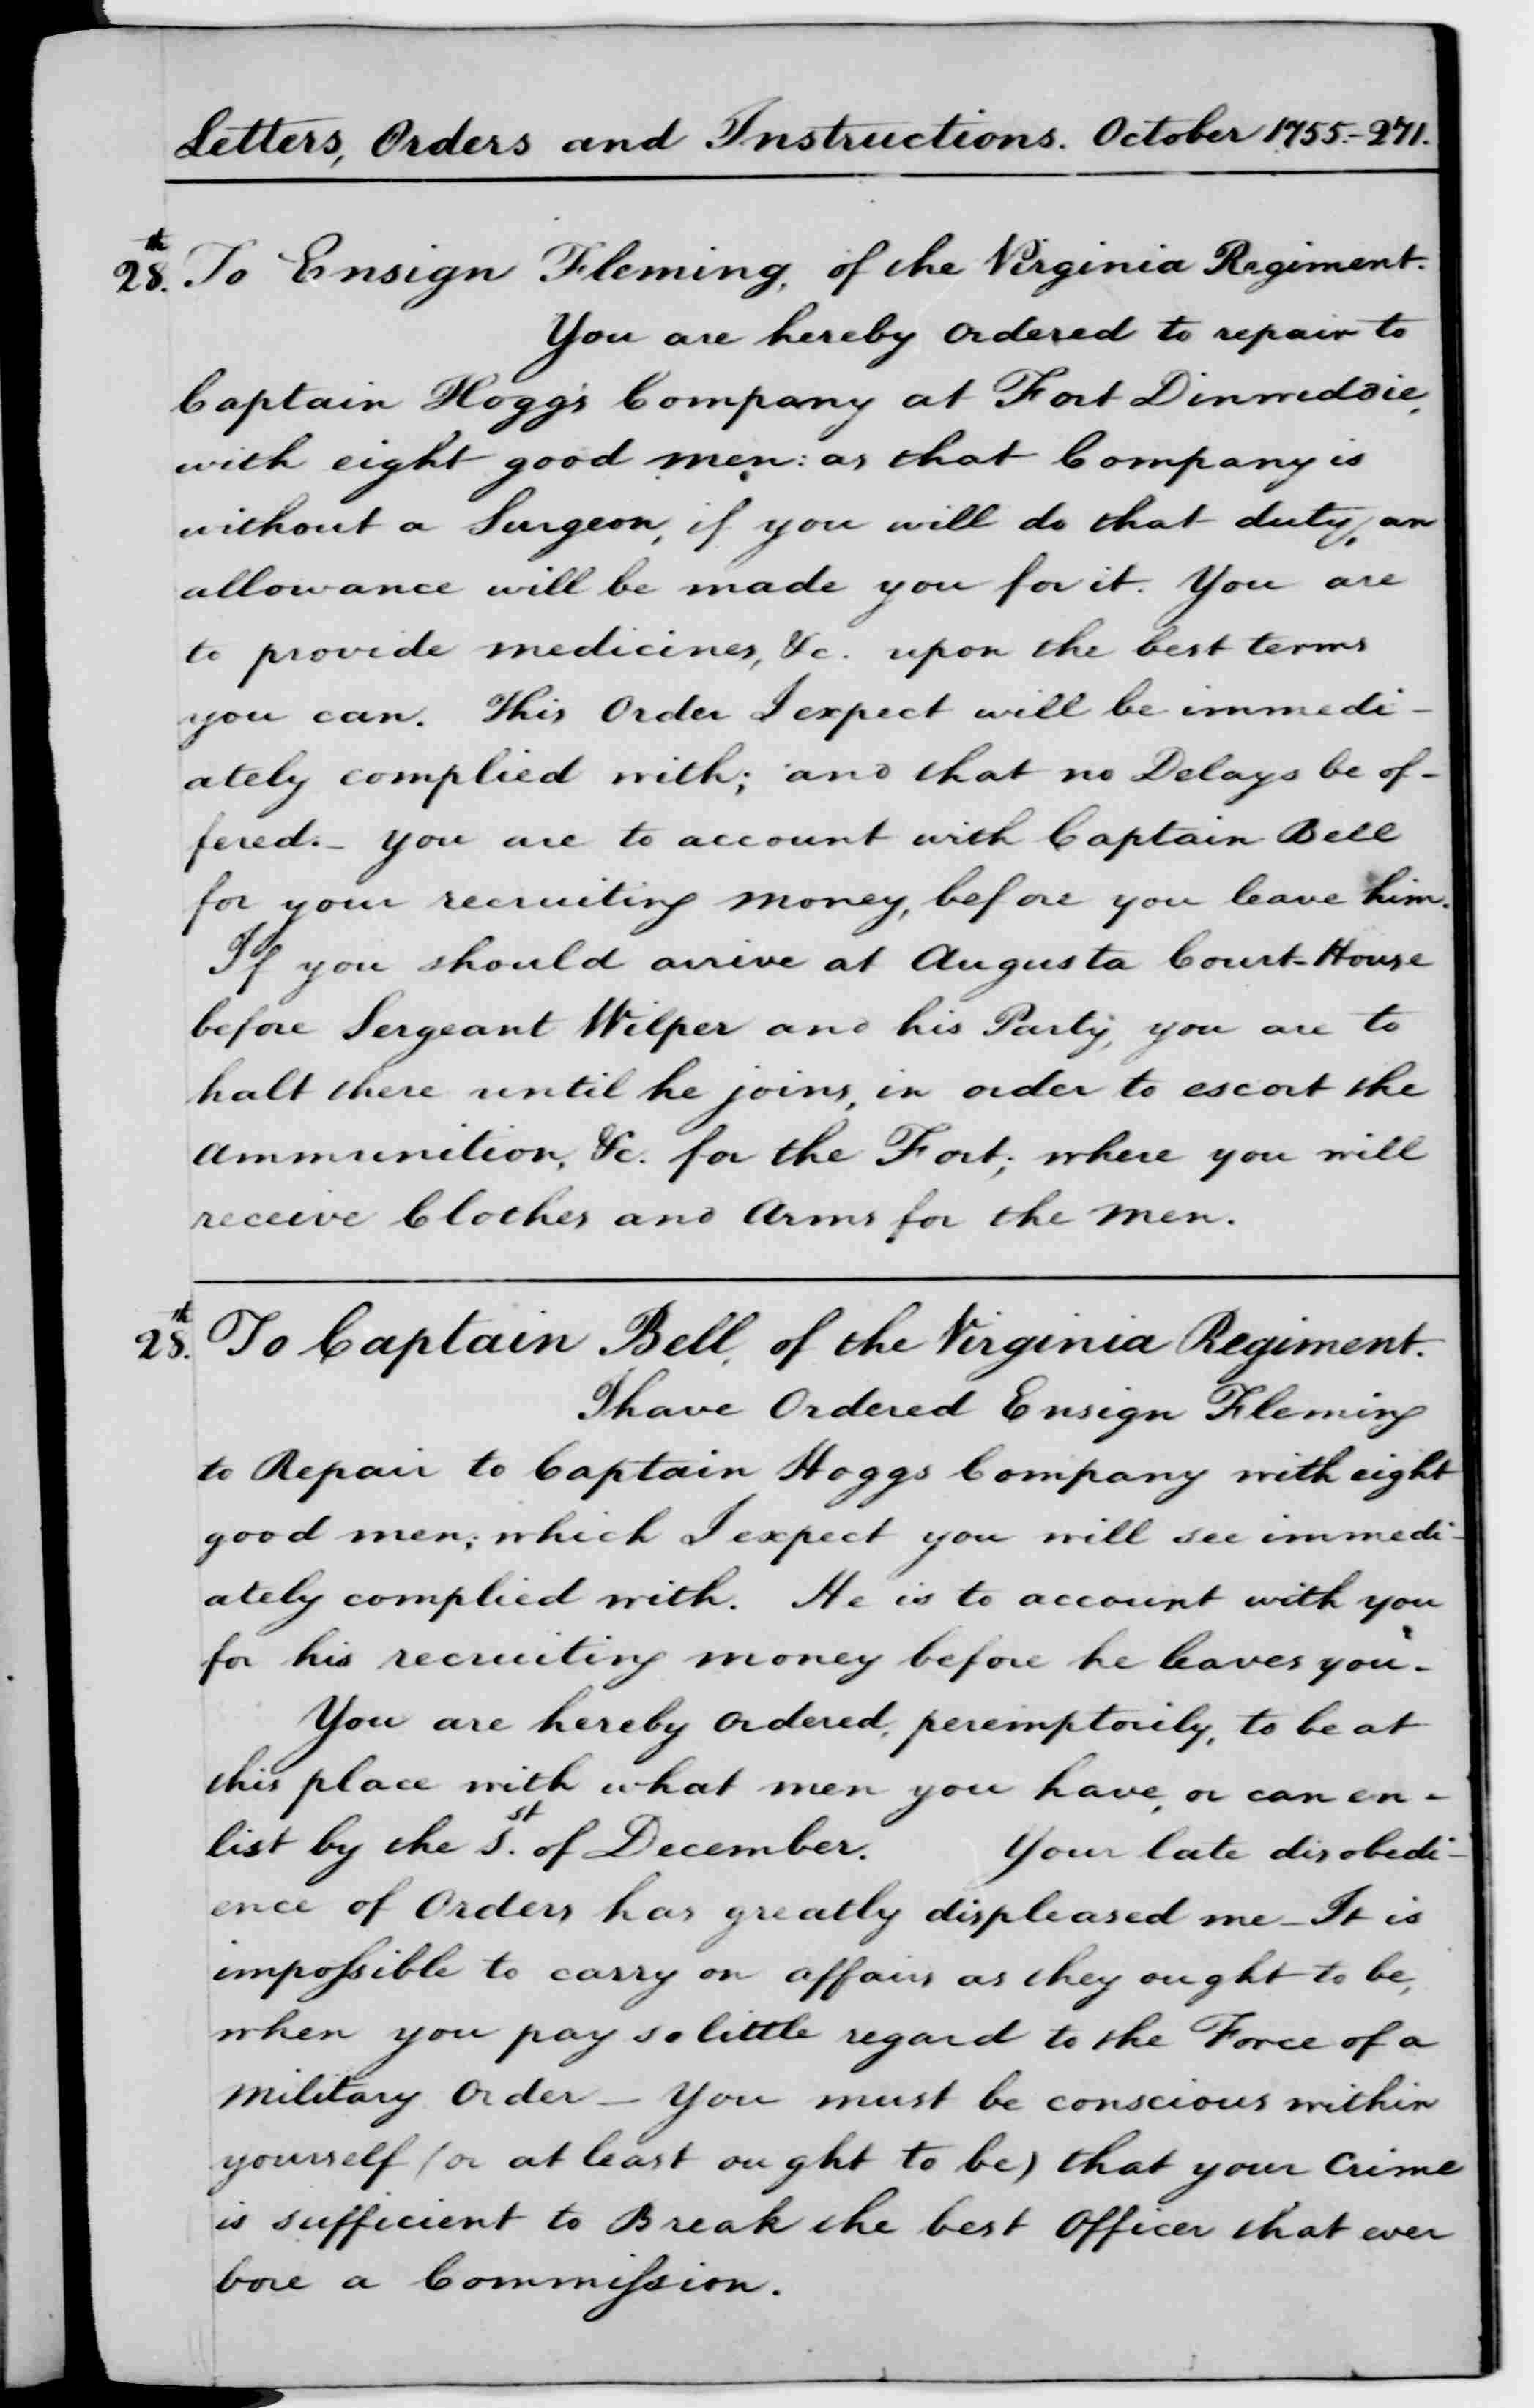 Letters, Orders and Instructions. October 1755.-271.
28.th To Ensign Fleming, of the Virginia Regiment.
You are hereby ordered to repair to
Captain Hogg's Company at Fort Dinwiddie,
with eight good men: as that Company is
without a Surgeon, if you will do that duty, an
allowance will be made you for it. You are
to provide medicines, &c. upon the best terms
you can. This Order I expect will be immedi-
ately complied with; and that no Delays be of-
fered.- you are to account with Captain Bell
for your recruiting money, before you leave him.
If you should arrive at Augusta Court-House
before Sergeant Wilper and his Party, you are to
halt there until he joins, in order to escort the
ammunition, &c. for the Fort; where you will
receive Clothes and Arms for the men.
28.th To Captain Bell, of the Virginia Regiment.
I have Ordered Ensign Fleming
to Repair to Captain Hoggs Company with eight
good men; which I expect you will see immedi-
ately complied with. He is to account with you
for his recruiting money before he leaves you.-
You are hereby ordered, peremptorily, to be at
this place with what men you have, or can en-
list by the 1.st of December. Your late disobedi-
ence of Orders has greatly displeased me_ It is
impossible to carry on affairs as they ought to be,
when you pay so little regard to the Force of a
military Order_ You must be conscious within
yourself (or at least ought to be) that your Crime
is sufficient to Break the best Officer that ever
bore a Commission.